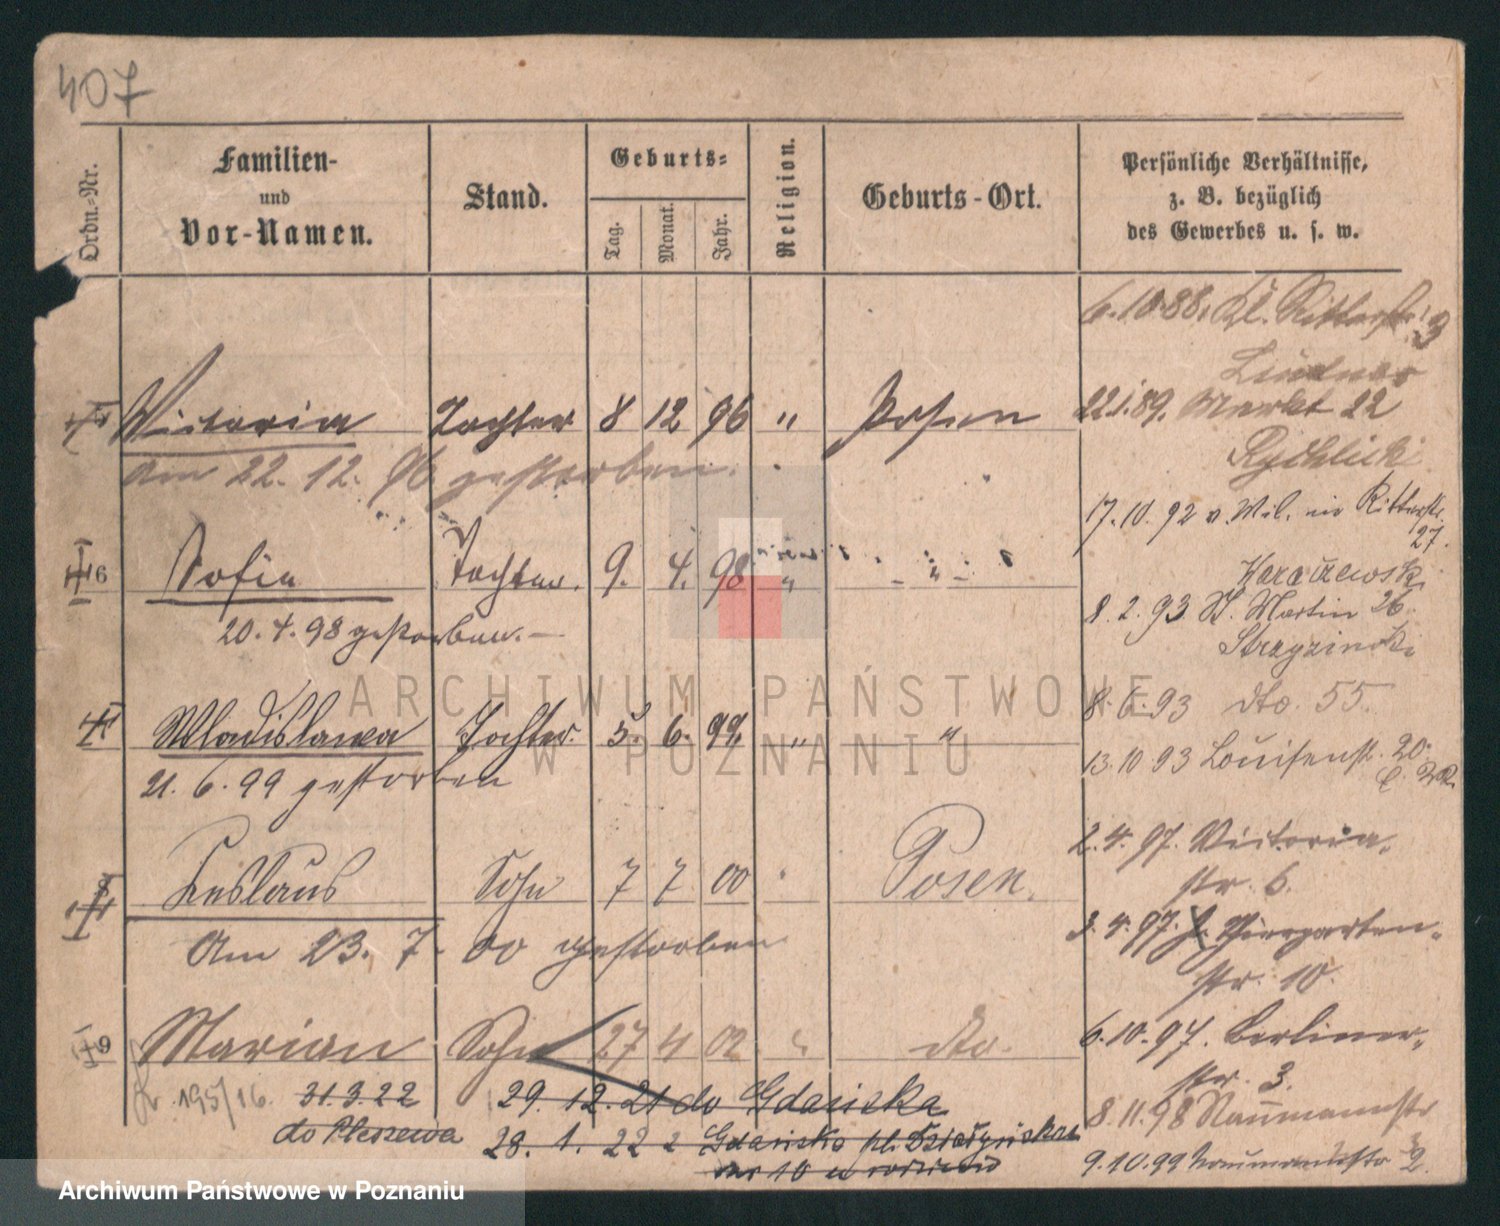 407
Ordn.-Nr.
Familien-
und
Vor-Namen.
Stand.
Geburts-
Tag.
Monat.
Jahr.
Religion.
Geburts-Ort.
Persönliche Verhältnisse,
z. B. bezüglich
des Gewerbes u. s. w.
6.10.88. Kl. Ritterstr. 3
Lindner
Victoria Tochter 8 12 96 " Posen
22.1.89. Markt 22
am 22. 12. 96 gestorben.
Rydlicki
17.10.92 v. Wil. in Ritterstr.
27.
6 Sofia Tochter. 9. 4. 98 " - " -
20. 4. 98 gestorben. —
8.2.93 St. Martin 26.
Stryzinski
8.6.93 dto. 55.
Wladislawa Tochter. 5. 6. 99 " "
13.10.93 Louisenst. 20.
21. 6. 99 gestorben
2.4.97. Victoria-
str. 6.
Leslaus Sohn 7 7 00 " Posen.
3.4.97. Thiergarten-
Am 23. 7. 00 gestorben
str. 10.
9 Marian Sohn 27 4 02 " dto.
6.10.97. Berliner-
str. 3.
195/16. 31.3.22
do Pleszewa
29. 12. 21 do Gdańska
8.11.98 Naumannstr
28. 1. 22 z Gdańska pl. Działyńskich
nr 10 u rodziców
9.10.99 Naumannstr 2
ARCHIWUM PAŃSTWOWE
W POZNANIU
Archiwum Państwowe w Poznaniu